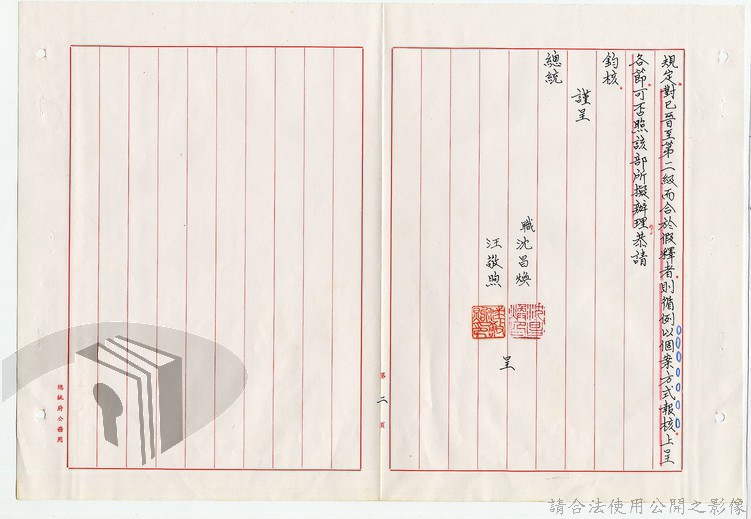 規定對已晉至第二級而合於假釋者則循例以個案方式報核上呈
各節可否照該部所擬辦理恭請
鈞核
謹呈
總統
職沈昌煥
汪敬煦
呈
第二頁
總統府公務用
請合法使用公開之影像